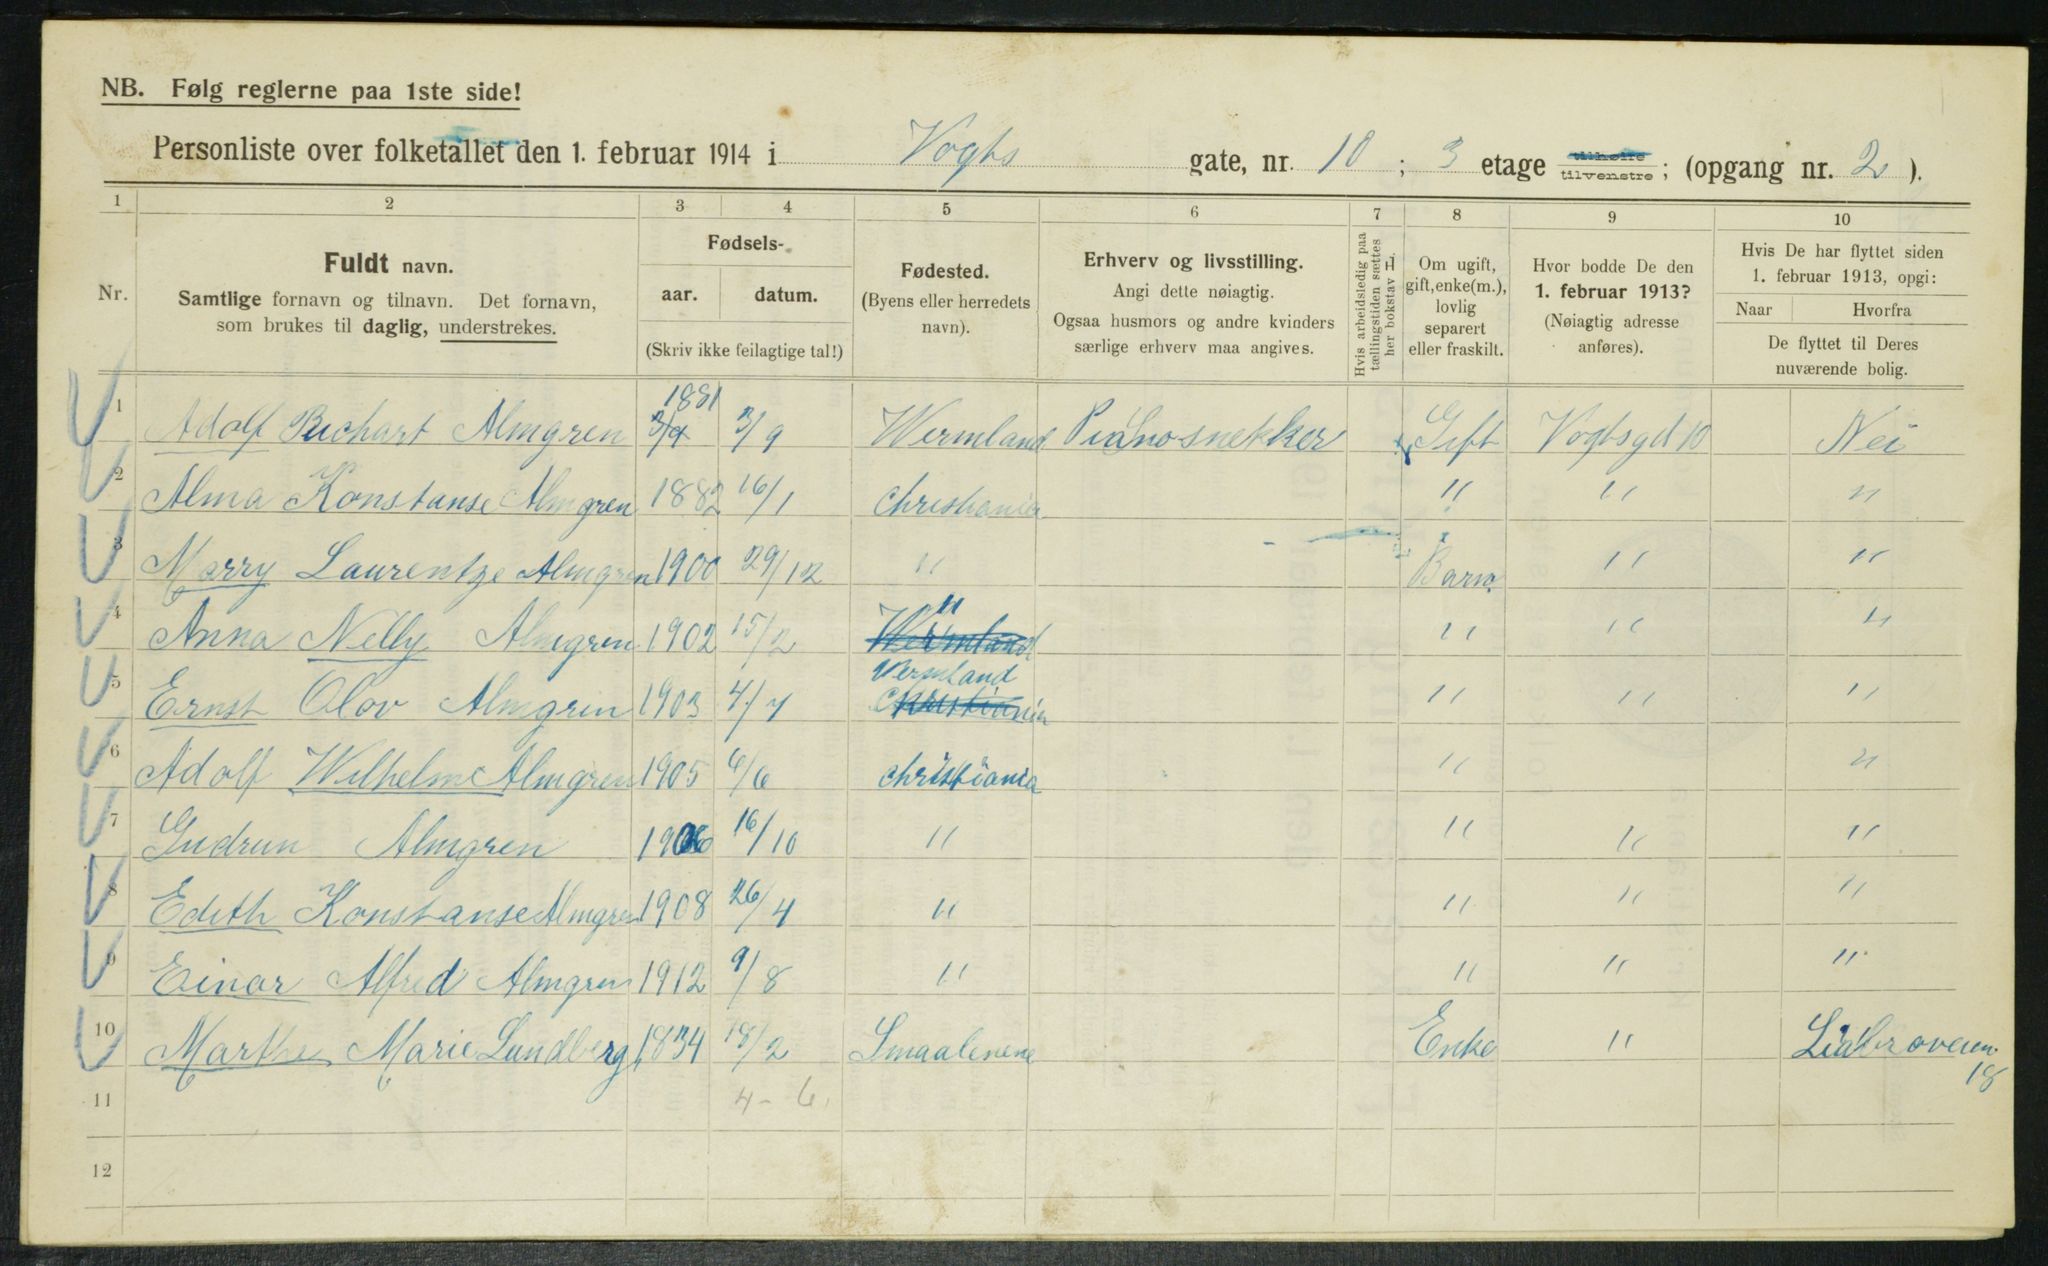 NB. Følg reglerne paa 1ste side!
Personliste over folketallet den 1. februar 1914 i Vogts gate, nr. 10 ; 3 etage tilhøire tilvenstre ; (opgang nr. 2 ).
1 2 3 4 5 6 7 8 9 10
Nr.
Fuldt navn.
Samtlige fornavn og tilnavn. Det fornavn,
som brukes til daglig, understrekes.
Fødsels-
aar. datum.
(Skriv ikke feilagtige tal!)
Fødested.
(Byens eller herredets
navn).
Erhverv og livsstilling.
Angi dette nøiagtig.
Ogsaa husmors og andre kvinders
særlige erhverv maa angives.
Hvis arbeidsledig paa
tællingstiden sættes
her bokstav L.
Om ugift,
gift, enke(m.),
lovlig
separert
eller fraskilt.
Hvor bodde De den
1. februar 1913?
(Nøiagtig adresse
anføres).
Hvis De har flyttet siden
1. februar 1913, opgi:
Naar Hvorfra
De flyttet til Deres
nuværende bolig.
1 Adolf Richart Almgren 3/9 1881 3/9 Wermland Pianosnekker Gift Vogtsgd 10 Nei
2 Alma Konstanse Almgren 1882 16/1 Christiania " " "
3 Marry Laurentze Almgren 1900 29/12 " Barn. " "
4 Anna Nelly Almgren 1902 15/2 " Wermland " " "
5 Ernst Olov Almgren 1903 4/7 Vermland Christiania " " "
6 Adolf Wilhelm Almgren 1905 6/6 Christiania " "
7 Gudrun Almgren 1906 16/10 " " " "
8 Edith Konstanse Almgren 1908 26/4 " " " "
9 Einar Alfred Almgren 1912 9/8 " " " "
10 Marthe Marie Lundberg 1834 18/2 Smaalenene Enke " Liabroveien 18
11 4 - 6.
12